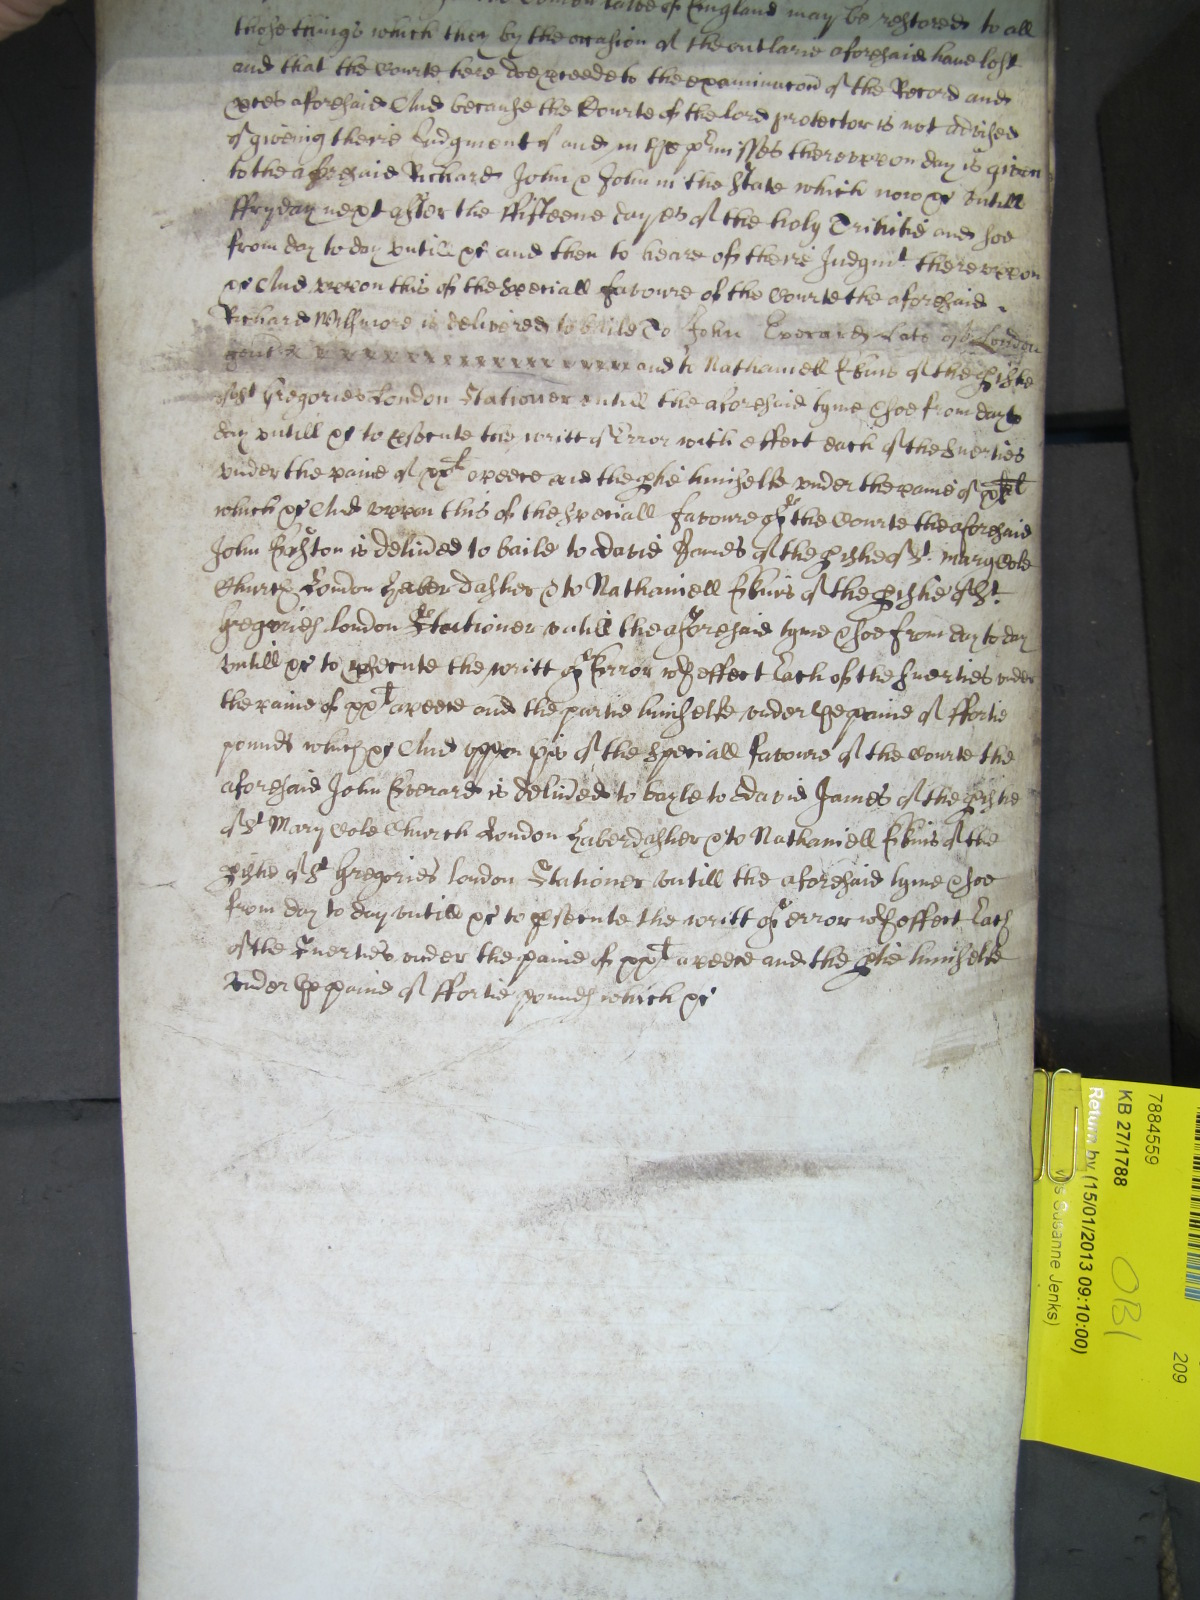 Comon lawe of England may be restored to all
those things which they by the occasion of the outlarie aforesaid have lost
and that the Courte here doe proceede to the examinacon of the Record and
pces aforesaid And because the Courte of the lord protector is not advised
of giveing theire Judgment of and in the pmisses thereuppon day is given
to the aforesaid Richard John & John in the State which now &c untill
ffryday next after the ffifteene dayes of the holy Trinitie and soe
from day to day untill &c and then to heare of theire Judgmt thereuppon
&c And uppon this of the speciall favoure of the Courte the aforesaid
Richard Willmore is delivered to baile To John Everard Late of London
gent x x x x x x x x x x x x x x x x x x and to Nathaniell Ekins of the pishe
of St Gregories London Stationer untill the aforesaid tyme & soe from day to
day untill &c to psecute the writt of Error with effect each of the suerties
under the paine of xxl apeece and the ptie himselfe under the paine of xll
which &c And uppon this of the speciall favoure of the Courte the aforesaid
John is delived to baile to David James of the pishe of St. Mary Cole
Church London Haberdasher & to Nathaniell Ekins of the pishe of St.
Gregories London Stationer untill the aforesaid tyme & soe from day to day
untill &c to psecute the writt of Error wth effect Each of the suerties under
the paine of xxl apeece and the partie himselfe under the paine of ffortie
pounds which &c And uppon this of the speciall favoure of the Courte the
aforesaid John Everard is delived to bayle to David James of the pishe
of St Mary Cole Church London Haberdasher & to Nathaniell Ekins of the
pishe of St Gregories london Stationer untill the aforesaid tyme & soe
from day to day untill &c to psecute the writt of error wth effect Each
of the Suerties under the paine of xxl apeece and the ptie himselfe
under the paine of ffortie pounds which &c
7884559
KB 27/1788
Return by (15/01/2013 09:10:00)
Susanne Jenks)
OB1
209